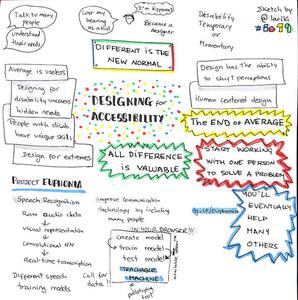 Talk to many people
understand their needs
Lost my hearing as a kid
I'm different!
Became a designer
Disability
Temporary
or
Momentary
Sketch by
DIFFERENT IS THE
NEW NORMAL
Average is useless
Designing for
disability uncovers
hidden needs
People with disab.
have unique skills
Design for extremes
DESIGNING for
ACCESSIBILITY
Design has the ability
to shift perceptions
Human centered design
THE END OF AVERAGE
ALL DIFFERENCE
IS VALUABLE
START WORKING
WITH ONE PERSON
TO SOLVE A PROBLEM
YOU'LL
EVENTUALLY
HELP
MANY
OTHERS
PROJECT EUPHONIA
Speech Recognition
Raw audio data
visual representation
Convolutional NN
Real-time transcription
Different speech
training models
Improve communication
technology by including
many people
g.co/euphonia
IN YOUR BROWSER!!!
create model
train model
test model
TEACHABLE
MACHINE
prototyping tool
Call for
data!!